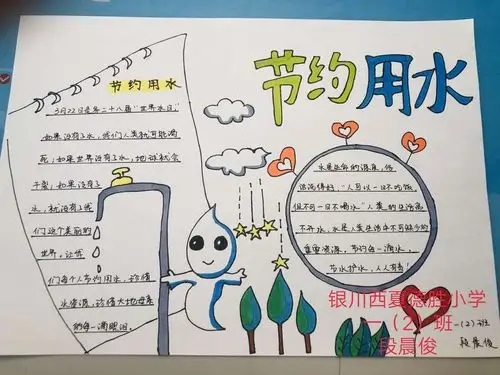 节约用水
节约用水
3月22日是第二十八届"世界水日"
如果没有了水,我们人类就可能渴
死,如果世界没有了水,地球就会
干裂,如果没有了
水,就没有了我
们这个美丽的
世界,让我
们每个人节约用水,珍惜
水资源,珍惜大地母亲
的每一滴眼泪。
水是生命的源泉,俗
话说得好,"人可以一日不吃饭,
但不可一日不喝水"人类的生活离
不开水,水是人类生活中不可缺少的
重要资源,节约每一滴水,
节水护水,人人有责!
银川西夏 胜小学
一(2)班
段晨俊
一(2)班
段晨俊